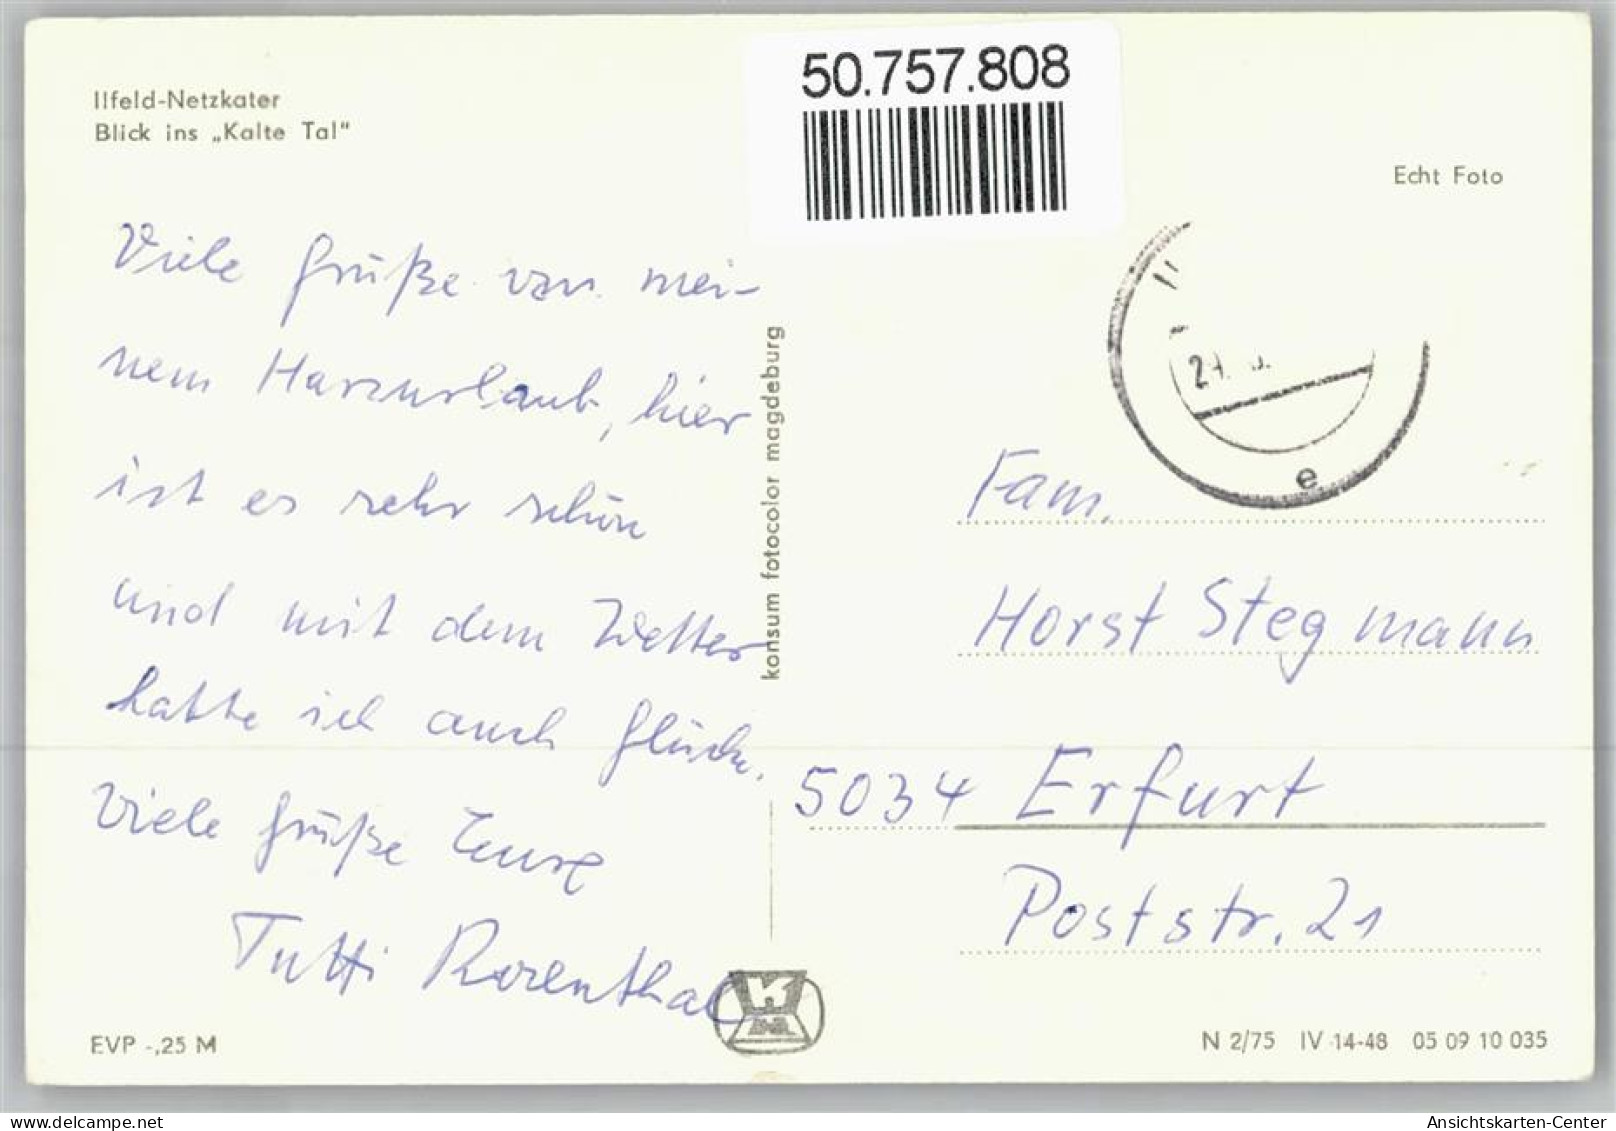 50.757.808
Ilfeld-Netzkater
Blick ins „Kalte Tal"
Echt Foto
Viele Grüße von mei-
nem Harzurlaub, hier
ist es sehr schön
und mit dem Wetter
hatte ich auch Glück.
Viele Grüße Eure
Tutti Rosenthal
konsum fotocolor magdeburg
e
Fam.
Horst Stegmann
5034 Erfurt
Poststr. 21
K
EVP -,25 M
N 2/75 IV 14-48 05 09 10 035
Ansichtskarten-Center